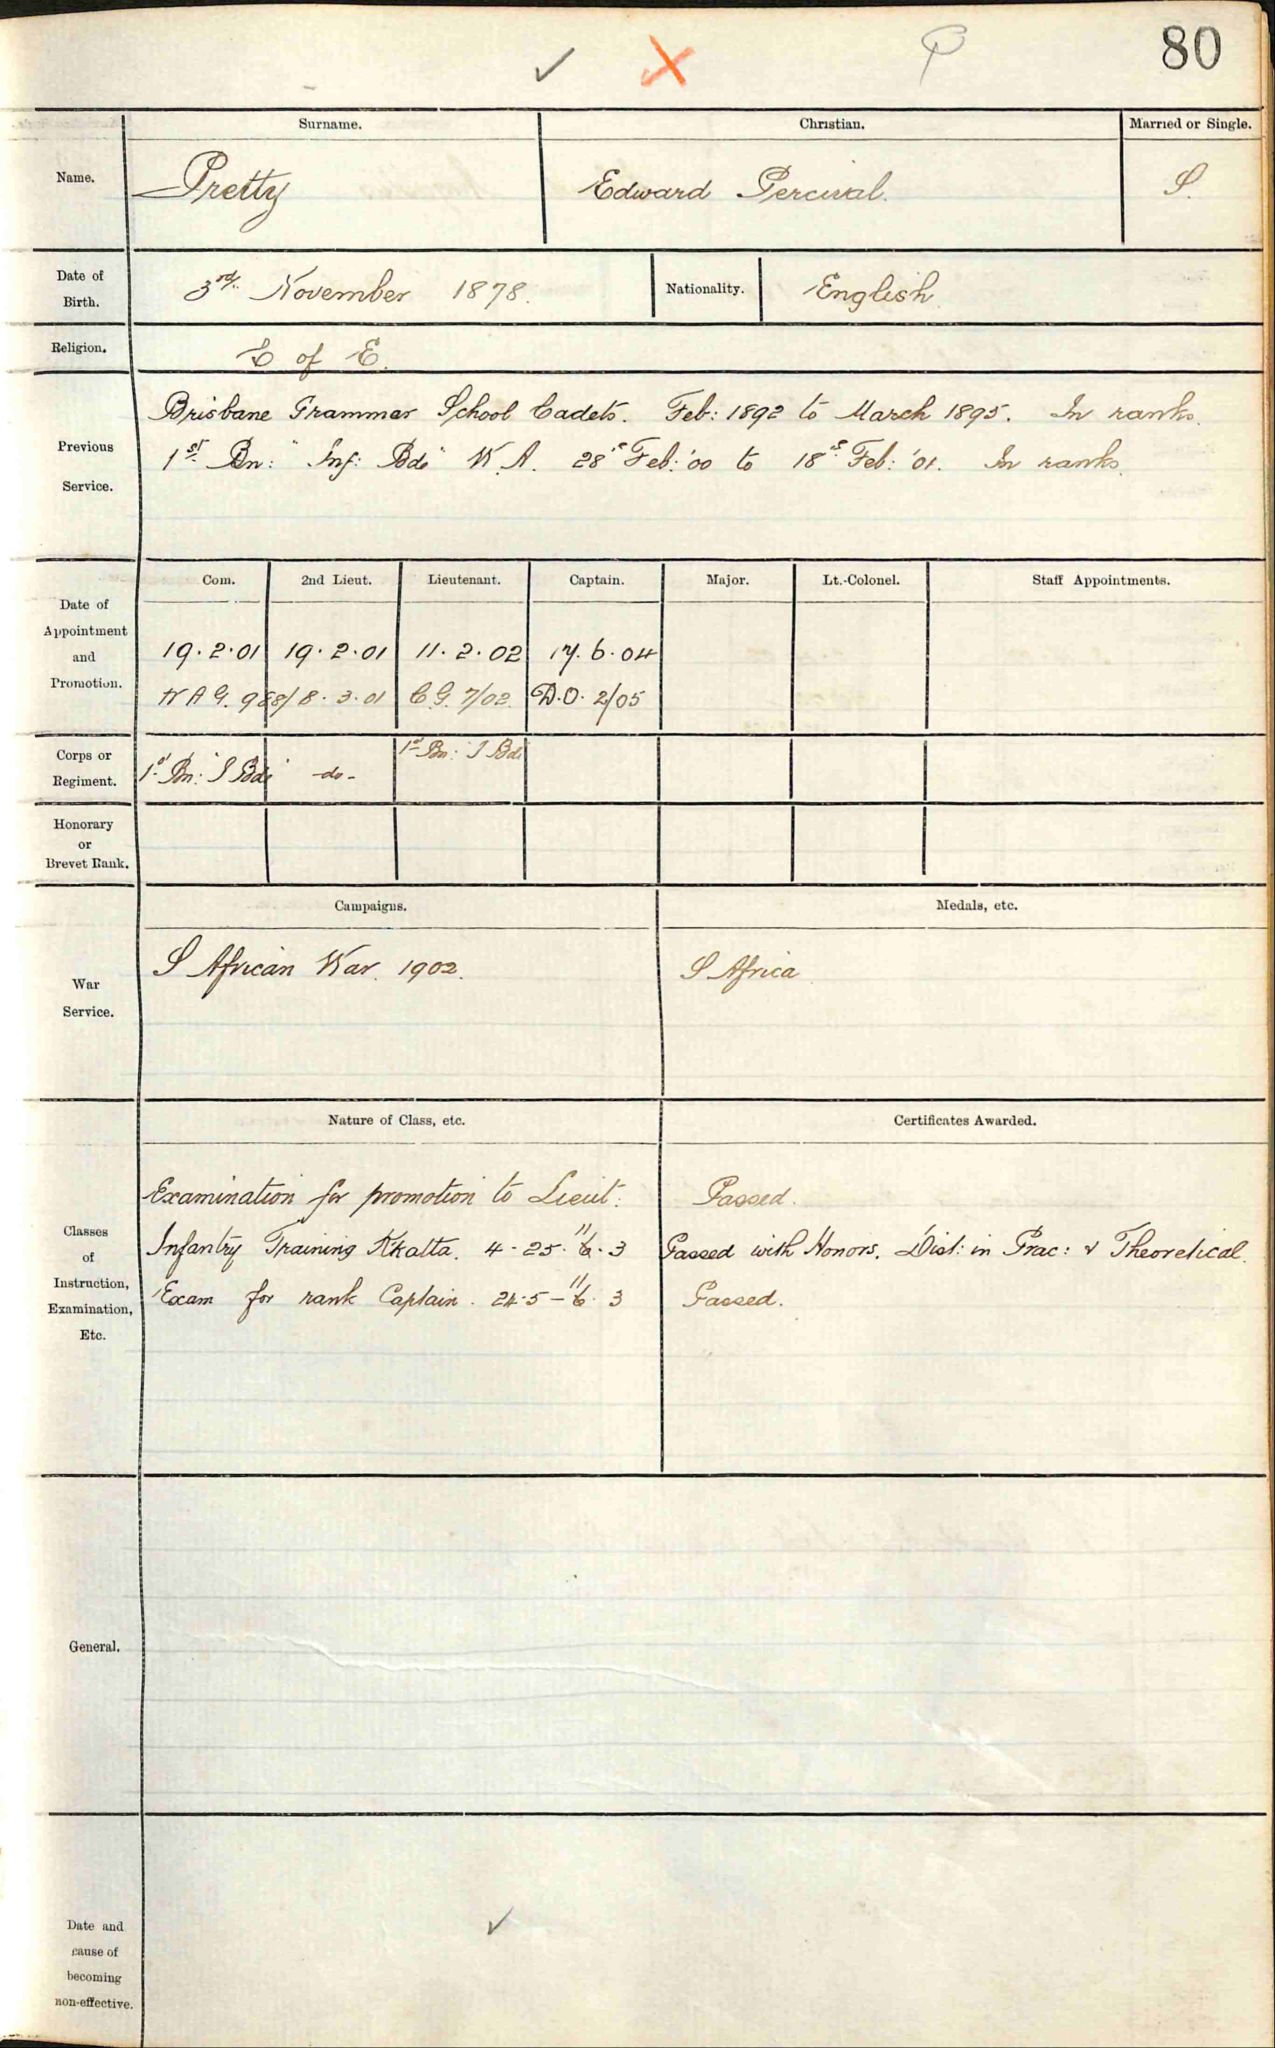 80
Surname. Christian. Married or Single.
Name. Pretty Edward Percival. S.
Date of Birth. 3rd November 1878. Nationality. English
Religion. C of E.
Previous Service.
Brisbane Grammar School Cadets. Feb: 1892 to March 1895. In ranks.
1st Bn: Inf: Bde W.A. 28th Feb: '00 to 18th Feb: '01. In ranks.
Date of Appointment and Promotion.
Com. 2nd Lieut. Lieutenant. Captain. Major. Lt.-Colonel. Staff Appointments.
19.2.01 19.2.01 11.2.02 17.6.04
W A G. 988/8.3.01 C G. 7/02. D.O. 2/05
Corps or Regiment. 1st Bn: I Bde -do- 1st Bn: I Bde
Honorary or Brevet Rank.
War Service.
Campaigns. Medals, etc.
S African War. 1902. S Africa
Classes of Instruction, Examination, Etc.
Nature of Class, etc. Certificates Awarded.
Examination for promotion to Lieut: Passed.
Infantry Training K'katta. 4-25.11/6.3 Passed with Honors. Dist: in Prac: & Theoretical.
Exam for rank Captain. 24.5-11/6.3 Passed.
General.
Date and cause of becoming non-effective.